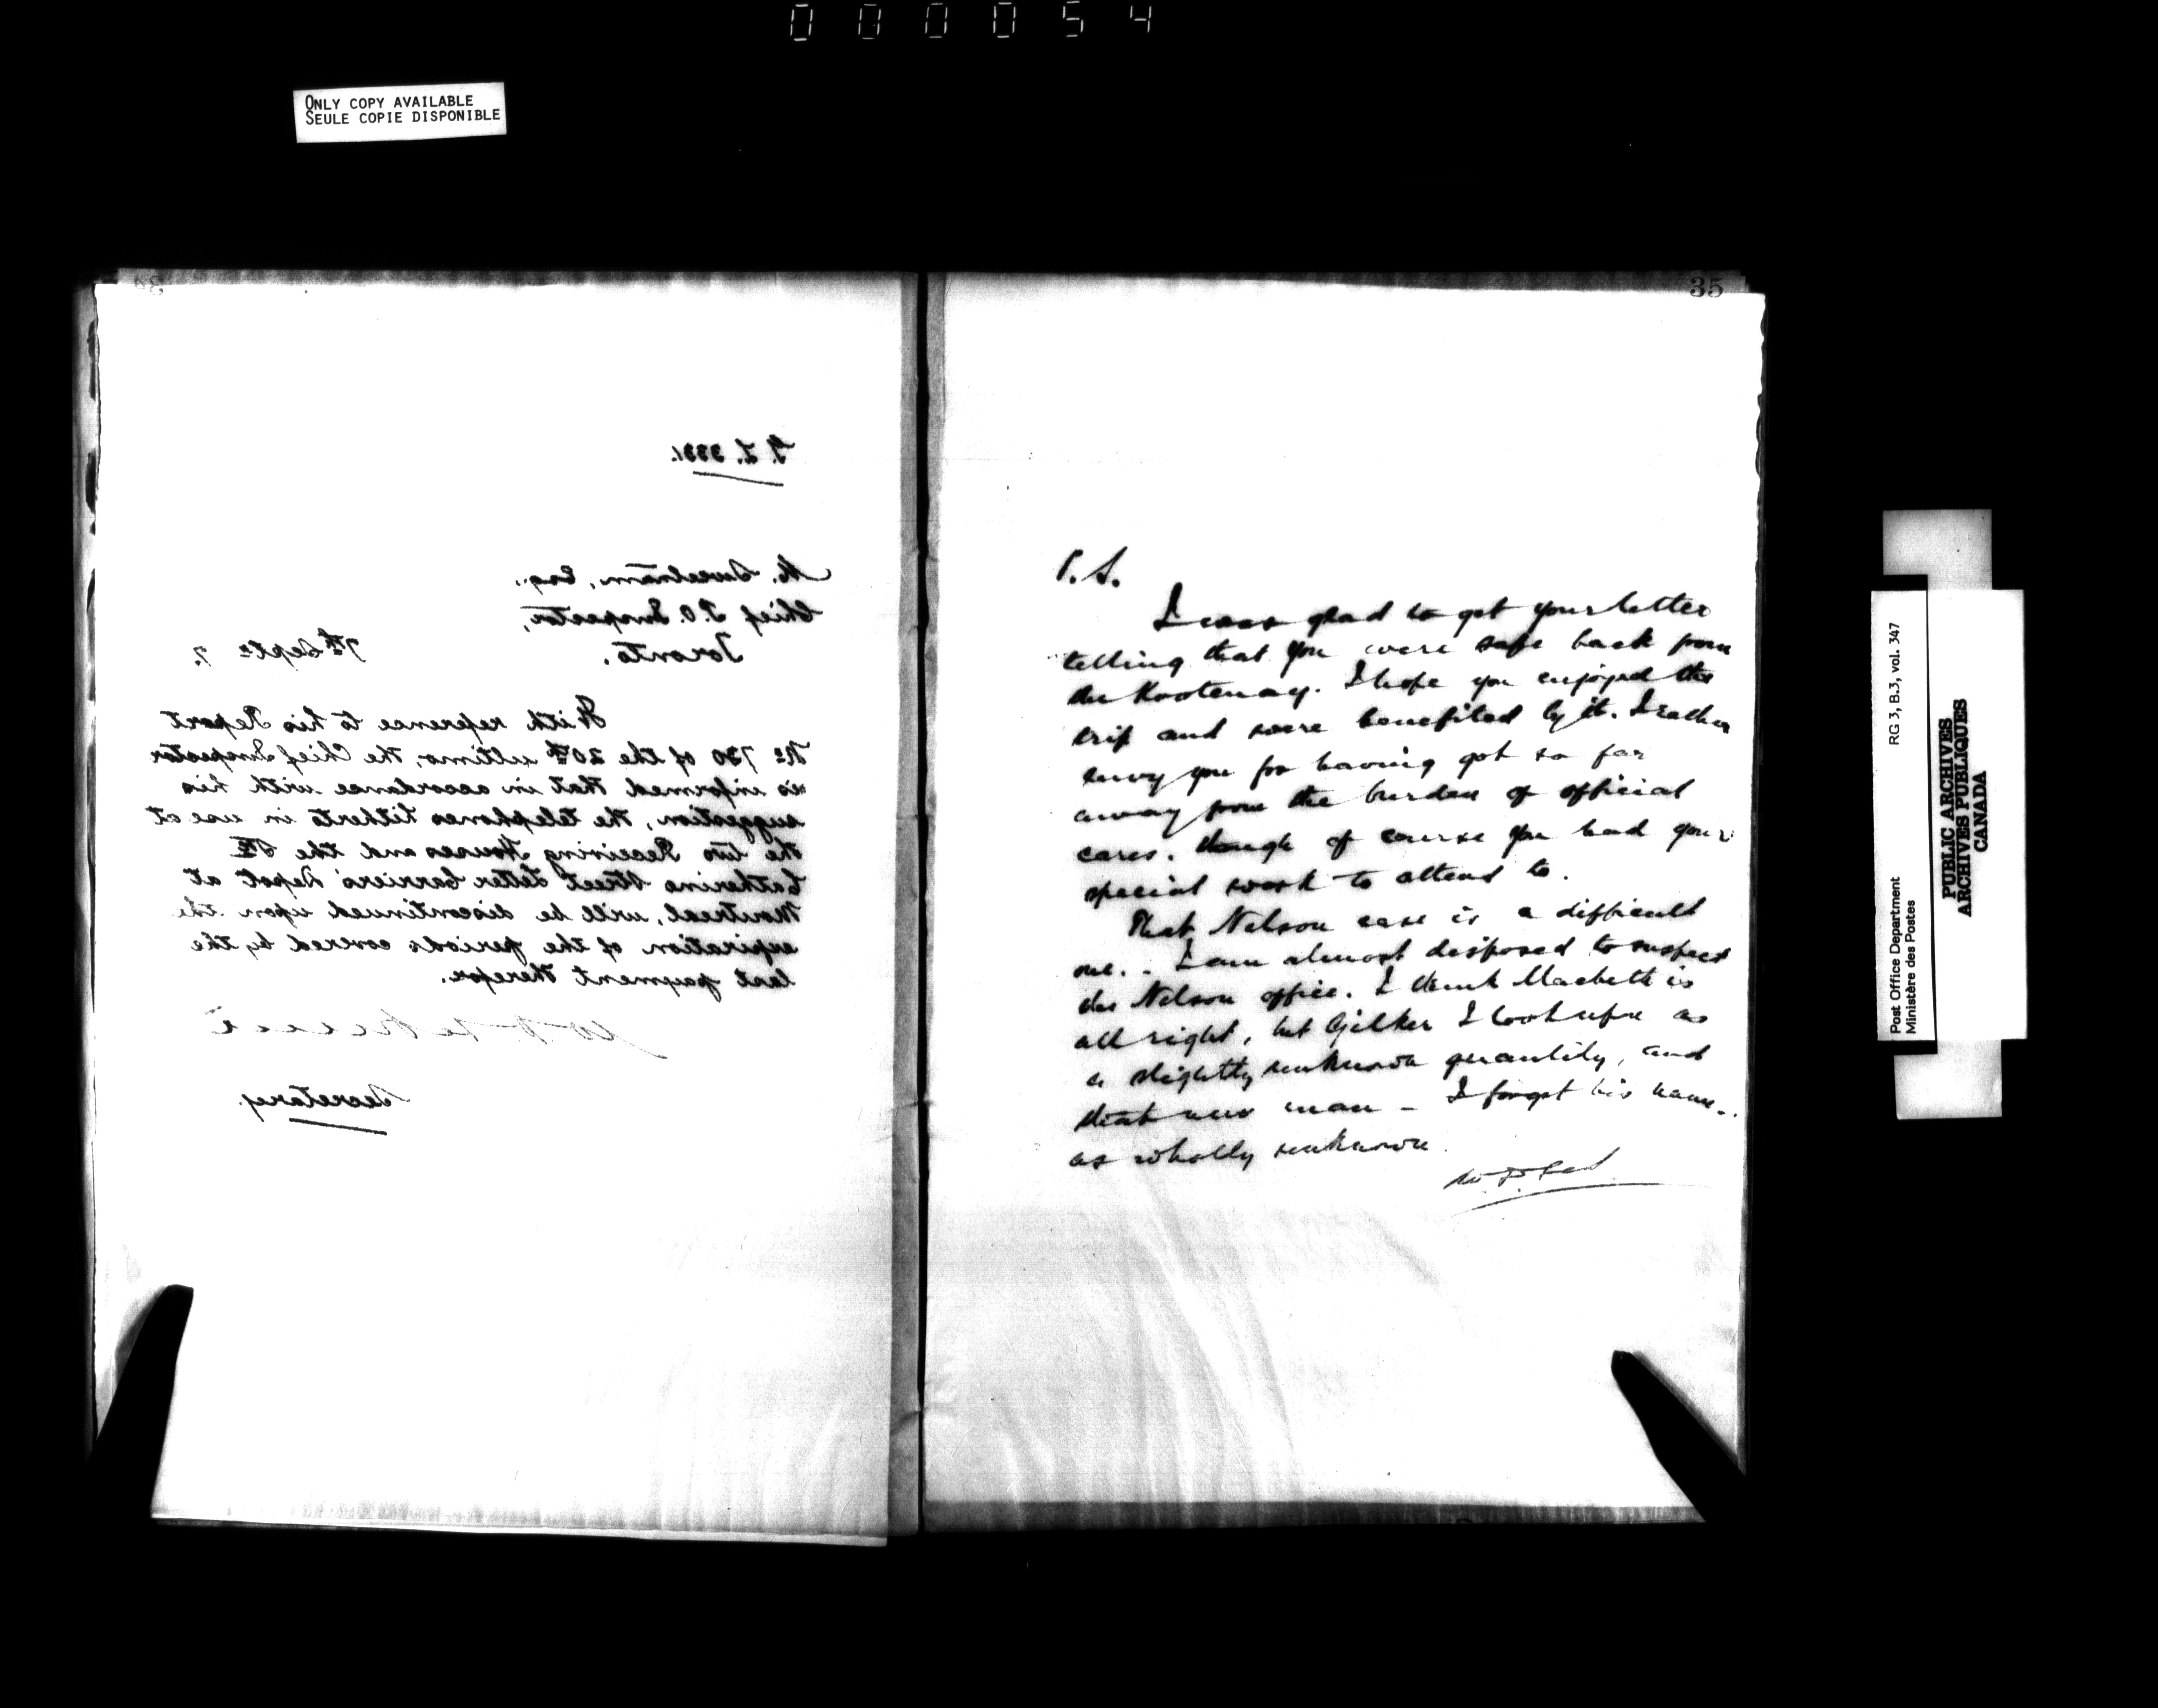 000054
ONLY COPY AVAILABLE
SEULE COPIE DISPONIBLE
34
M. Sweetnam, Esq.,
Chief P.O. Inspector,
Toronto.
7th Septr 7.
With reference to his Report
No 730 of the 20th ultimo, the Chief Inspector
is informed that in accordance with his
suggestion, the telephones hitherto in use at
the two Receiving Houses and the St.
Catherine Street Letter Carriers' Depot at
Montreal, will be discontinued upon the
expiration of the periods covered by the
last payment therefor.
Secretary.
35
P.S.
I was glad to get your letter
telling that you were safe back from
the Kootenay. I hope you enjoyed the
trip and were benefited by it. I rather
envy you for having got so far
away from the burden of official
cares. though of course you had your
special work to attend to.
That Nelson case is a difficult
one. - I am almost disposed to suspect
the Nelson office. I think Macbeth is
all right, but Gilker I look upon as
a slightly unknown quantity, and
that new man - I forget his name -
as wholly unknown.
Post Office Department RG 3, B.3, vol. 347
Ministère des Postes
PUBLIC ARCHIVES
ARCHIVES PUBLIQUES
CANADA